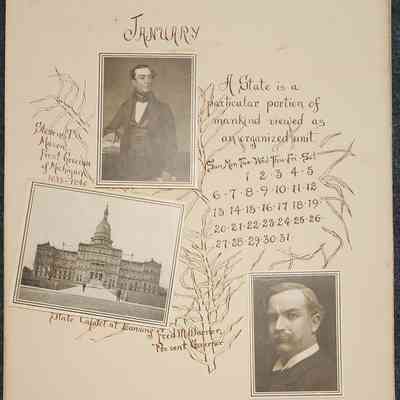 JANUARY
A State is a
particular portion of
mankind viewed as
an organized unit
Stevens T.
Mason
First Governor
of Michigan
1835-1840
Sun. Mon. Tue. Wed. Thu. Fri. Sat.
1 2 3 4 5
6 7 8 9 10 11 12
13 14 15 16 17 18 19
20 21 22 23 24 25 26
27 28 29 30 31
State Capitol at Lansing
Fred M. Warner
Present Governor